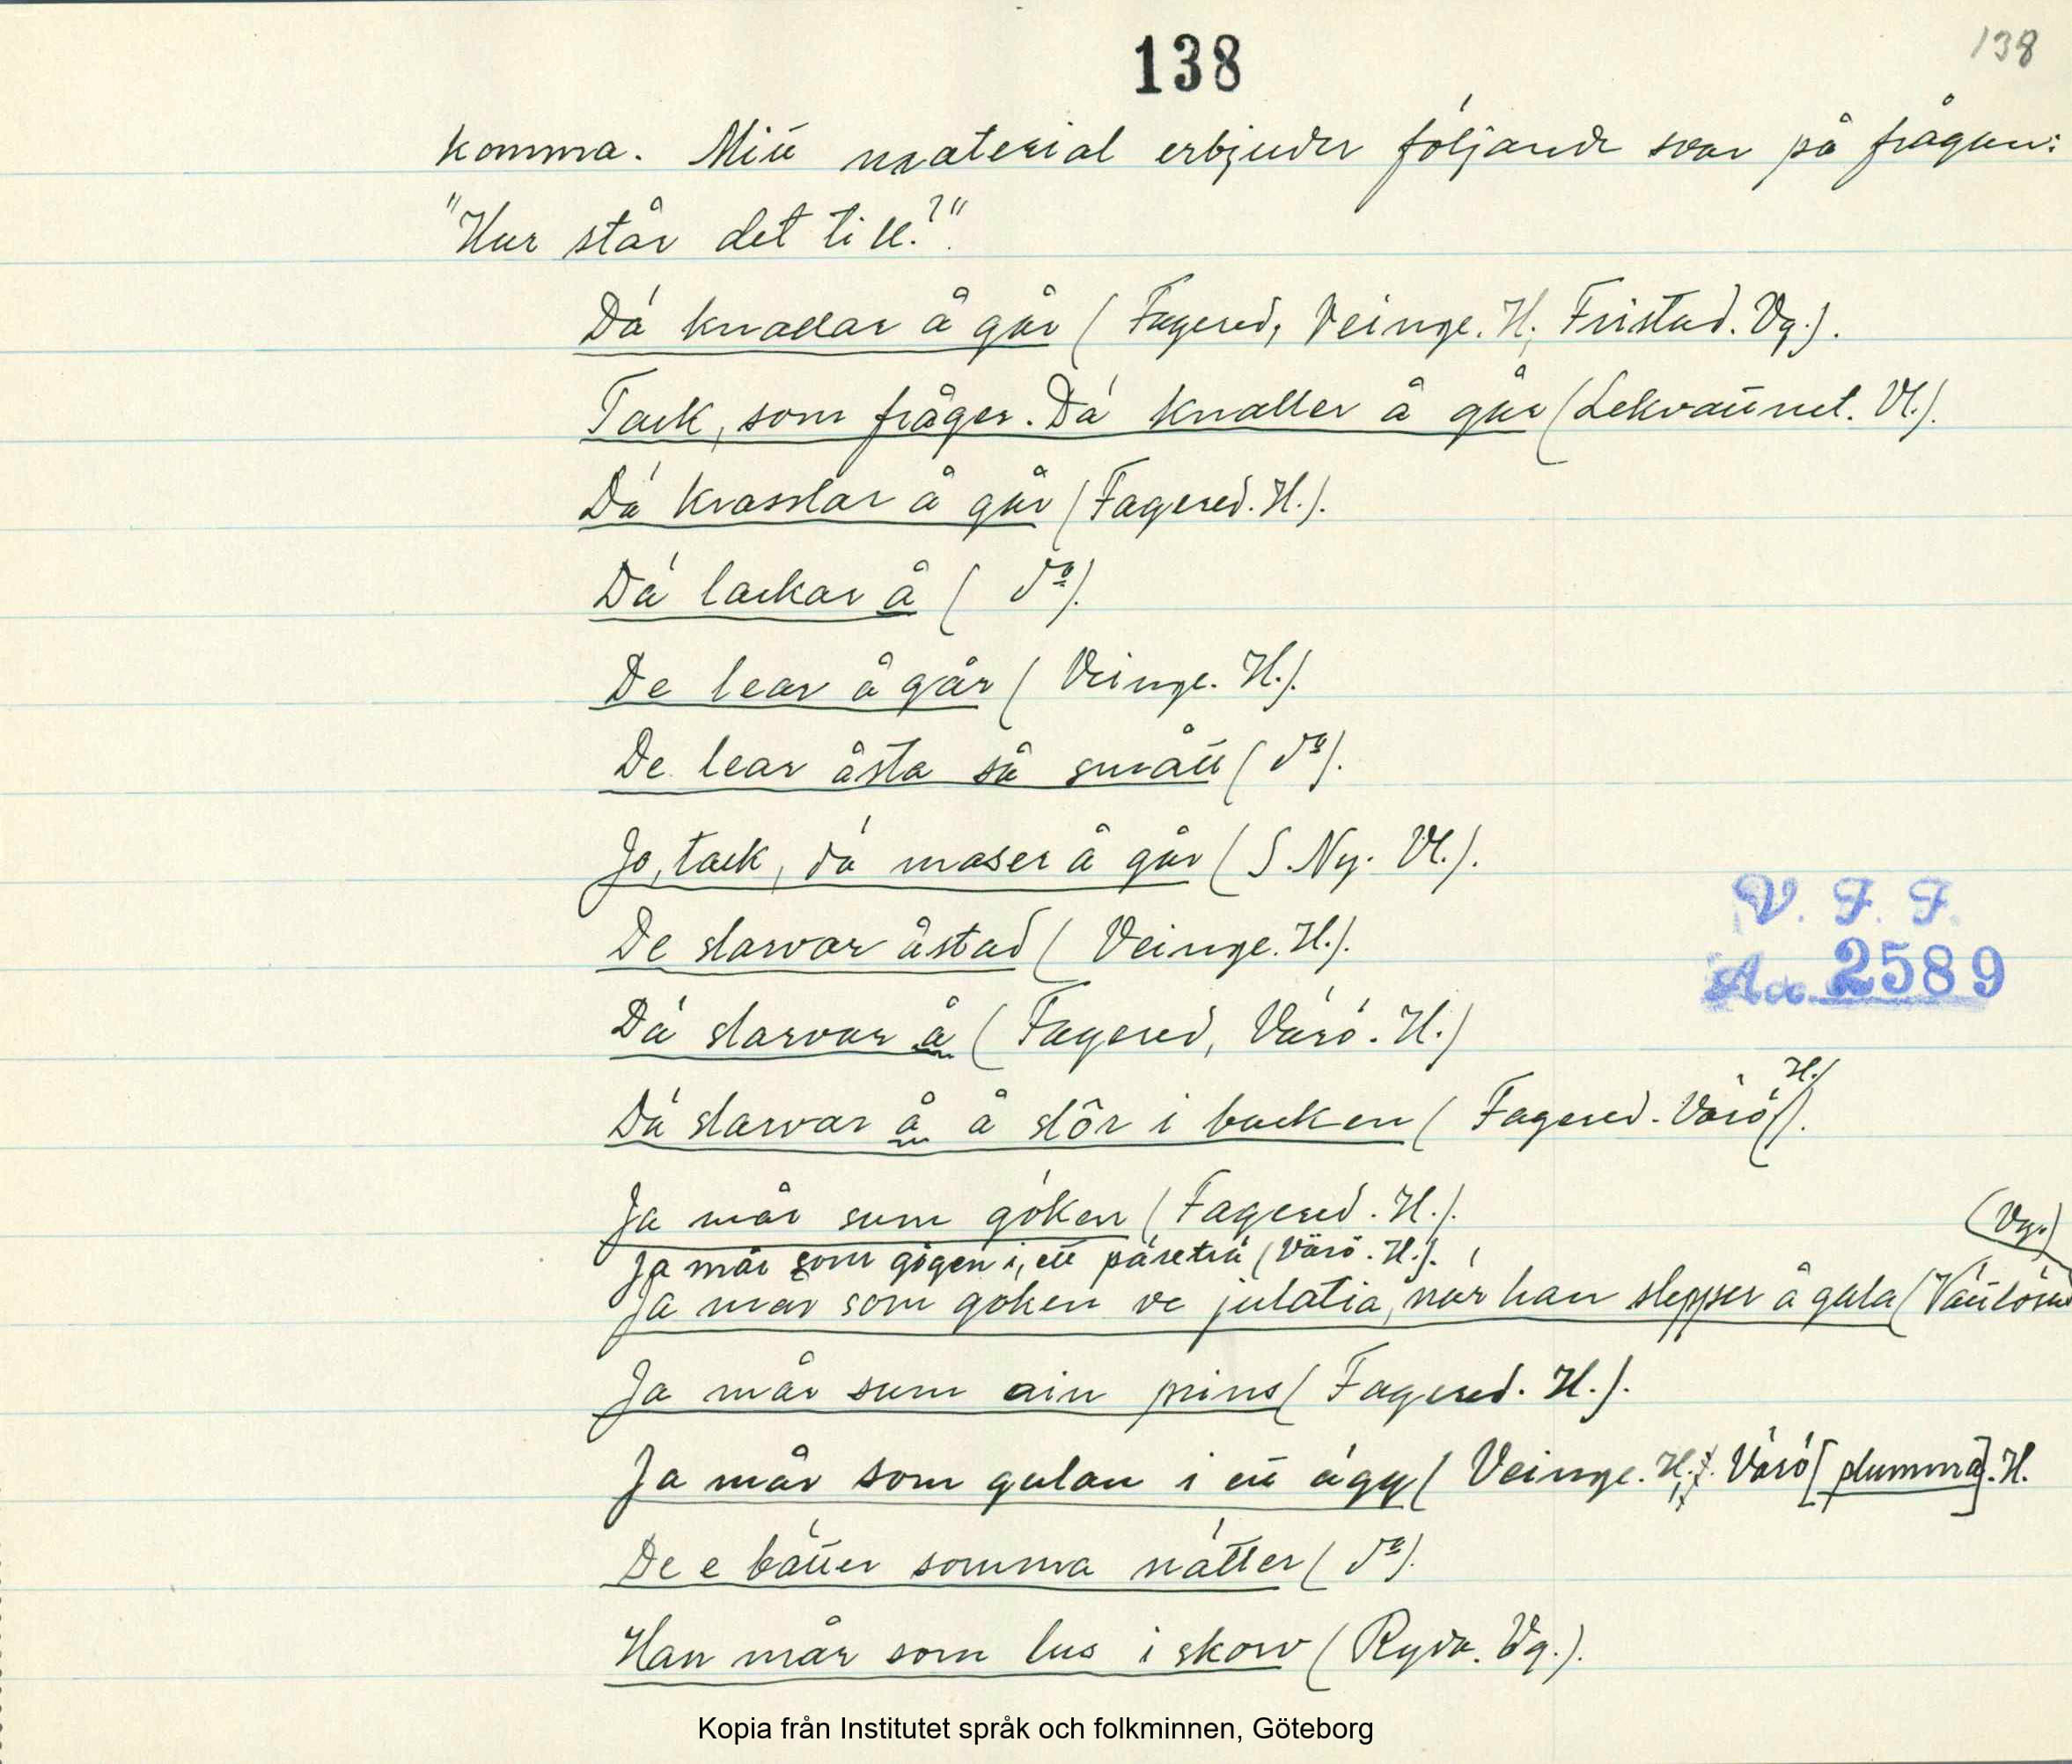 138
138
komma. Mitt material erbjuder följande svar på frågan:
"Hur står det till?".
Dä knallar å går (Fagered, Veinge. H; Fristad. Vg.).
Tack, som fråger. Dä knaller å går (Lekvattnet. Vl.).
Dä krasslar å går (Fagered. H.).
Dä lackar å ( do).
De lear å går (Veinge. H.).
De lear åsta så smått (do).
Jo, tack, dä maser å går (S. Ny. Vl.).
De slarvar åstad (Veinge. H.).
Dä slarvar å (Fagered, Värö. H.)
Dä slarvar å å slôr i backen (Fagered. Värö H.).
Ja mår sum göken (Fagered. H.).
Ja mår som gögen i ett päreträ (Värö. H.).
Ja mår som göken ve julatia, när han slepper å gala (Vg.)
Ja mår sum ain prins (Fagered. H.).
Ja mår som gulan i ett ägg (Veinge. H.; Värö [plumma]. H.
De e bätter somma nätter (do).
Han mår som lus i skorv (Ryda. Vg.).
V. F. F.
Aa. 2589
Kopia från Institutet språk och folkminnen, Göteborg